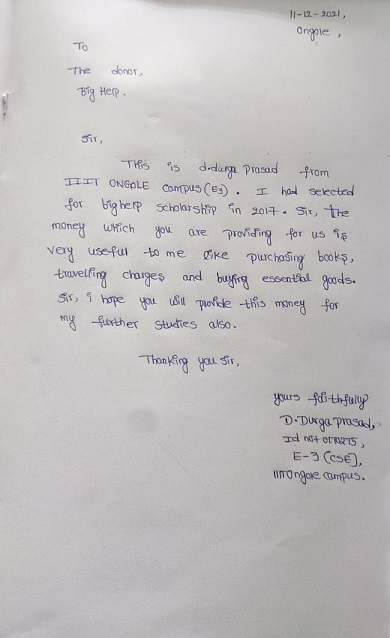 11-12-2021,
Ongole,
To
The donor,
Big Help.
Sir,
This is d.durga prasad from
IIIT ONGOLE campus (E3). I had selected
for bighelp scholarship in 2017. Sir, the
money which you are providing for us is
very useful to me like purchasing books,
travelling charges and buying essential goods.
Sir, i hope you will provide this money for
my further studies also.
Thanking you sir,
yours faithfully
D.Durga prasad,
Id no:
E-3 (CSE),
IIIT Ongole campus.